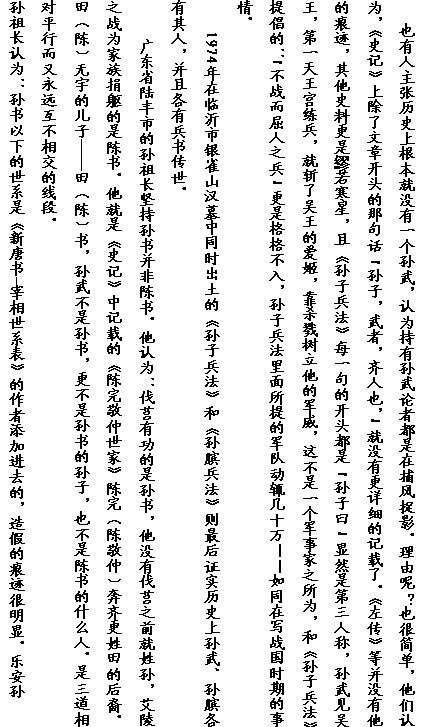 也有人主张历史上根本就没有一个孙武，认为持有孙武论者都是在捕风捉影。理由呢？也很简单，他们认
为，《史记》上除了文章开头的那句话“孙子，武者，齐人也，”就没有更详细的记载了。《左传》等并没有他
的痕迹，其他史料更是寥若寒星，且《孙子兵法》每一句的开头都是“孙子曰”显然是第三人称，孙武见吴
王，第一天王宫练兵，就斩了吴王的爱姬，靠杀戮树立他的军威，这不是一个军事家之所为，和《孙子兵法》
提倡的：“不战而屈人之兵”更是格格不入，孙子兵法里面所提的军队动辄几十万——如同在写战国时期的事
情。
1974年在临沂市银雀山汉墓中同时出土的《孙子兵法》和《孙膑兵法》则最后证实历史上孙武、孙膑各
有其人，并且各有兵书传世。
广东省陆丰市的孙祖长坚持孙书并非陈书。他认为：伐莒有功的是孙书，他没有伐莒之前就姓孙，艾陵
之战为家族捐躯的是陈书。他就是《史记》中记载的《陈完敬仲世家》陈完（陈敬仲）奔齐更姓田的后裔。
田（陈）无宇的儿子——田（陈）书，孙武不是孙书，更不是孙书的孙子，也不是陈书的什么人。是三道相
对平行而又永远互不相交的线段。
孙祖长认为：孙书以下的世系是《新唐书—宰相世系表》的作者添加进去的，造假的痕迹很明显。乐安孙